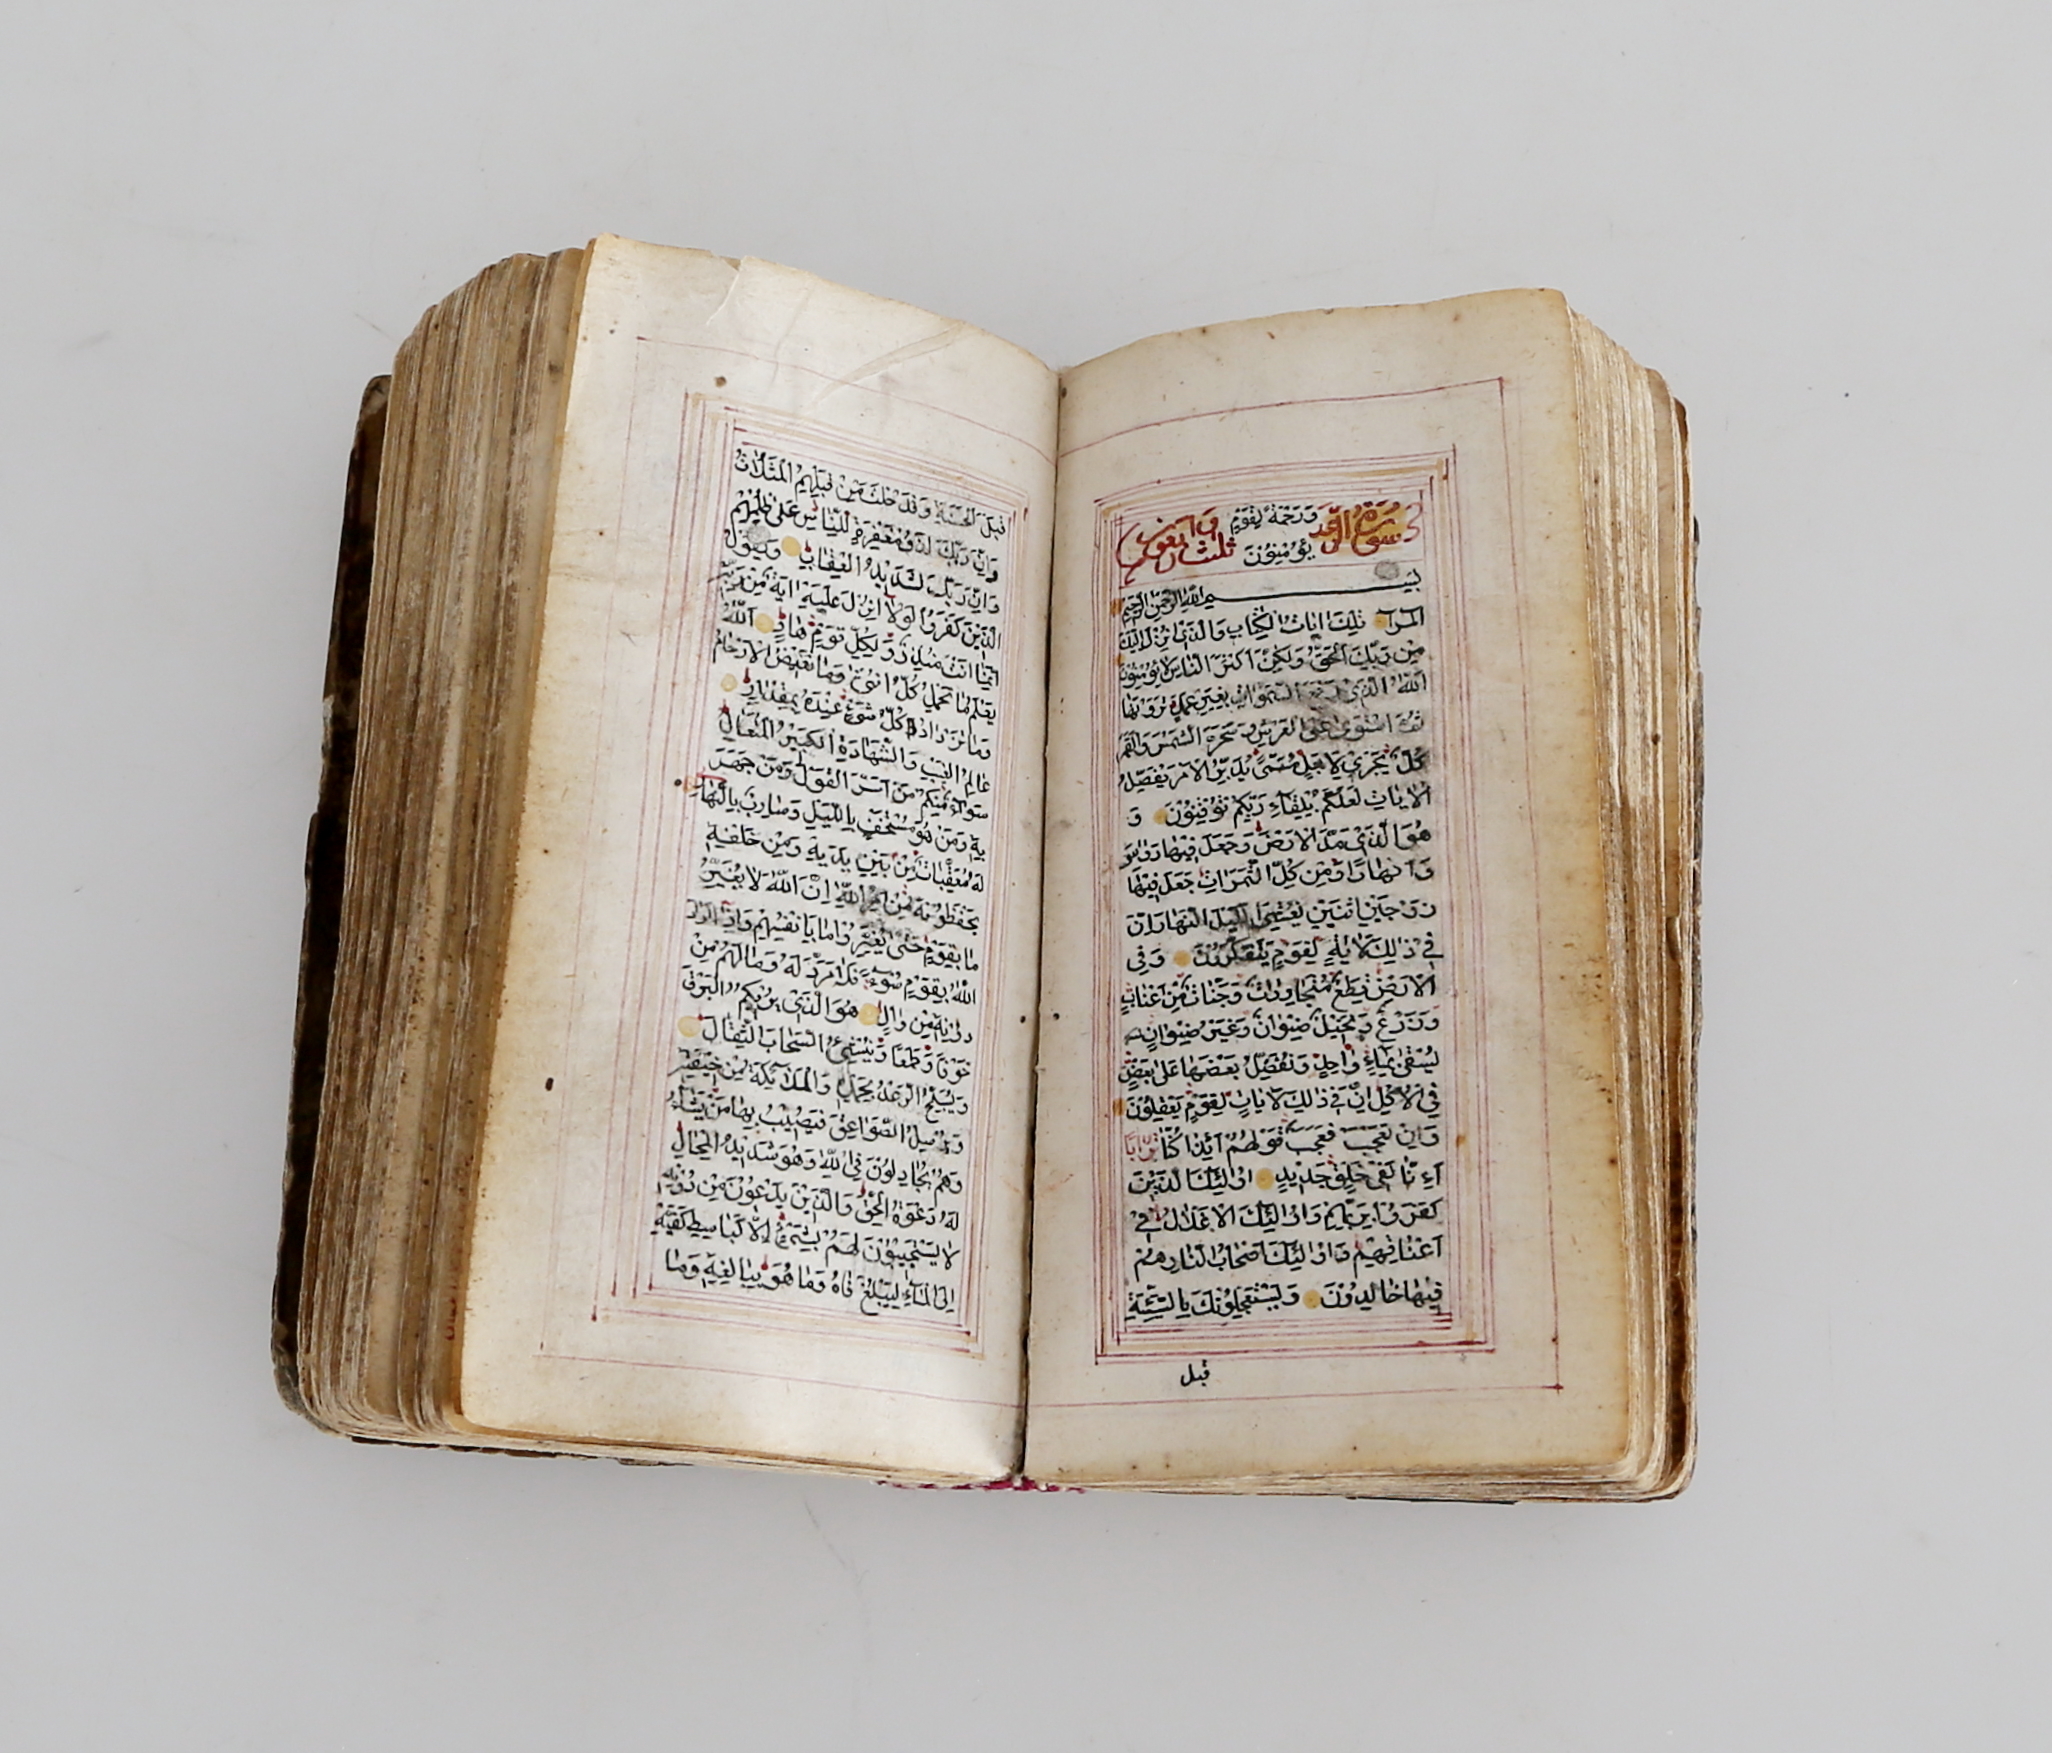 سورة الرعد ورحمة لقوم
يؤمنون ثلث
بسم الله الرحمن الرحيم
المر تلك ايات الكتاب والذي انزل اليك
من ربك الحق ولكن اكثر الناس لا يؤمنون
الله الذي رفع السموات بغير عمد ترونها
ثم استوى على العرش وسخر الشمس والقمر
كل يجري لاجل مسمى يدبر الامر يفصل
الايات لعلكم بلقاء ربكم توقنون و
هو الذي مد الارض وجعل فيها رواسي
وانهارا ومن كل الثمرات جعل فيها
زوجين اثنين يغشي الليل النهار ان
في ذلك لاية لقوم يتفكرون وفي
الارض قطع متجاورات وجنات من اعناب
وزرع ونخيل صنوان وغير صنوان
يسقى بماء واحد ونفضل بعضها على بعض
في الاكل ان في ذلك لايات لقوم يعقلون
وان تعجب فعجب قولهم ائذا كنا ترابا
اءنا لفي خلق جديد اولئك الذين
كفروا بربهم واولئك الاغلال في
اعناقهم واولئك اصحاب النار هم
فيها خالدون ويستعجلونك بالسيئة
قبل
قبل الحسنة وقد خلت من قبلهم المثلات
وان ربك لذو مغفرة للناس على ظلمهم
وان ربك لشديد العقاب ويقول
الذين كفروا لولا انزل عليه اية من ربه
انما انت منذر ولكل قوم هاد الله
يعلم ما تحمل كل انثى وما تغيض الارحام
وما تزداد وكل شيء عنده بمقدار
عالم الغيب والشهادة الكبير المتعال
سواء منكم من اسر القول ومن جهر
به ومن هو مستخف بالليل وسارب بالنهار
له معقبات من بين يديه ومن خلفه
يحفظونه من امر الله ان الله لا يغير
ما بقوم حتى يغيروا ما بانفسهم واذا اراد
الله بقوم سوء فلا مرد له وما لهم من
دونه من وال هو الذي يريكم البرق
خوفا وطمعا وينشئ السحاب الثقال
ويسبح الرعد بحمده والملائكة من خيفته
ويرسل الصواعق فيصيب بها من يشاء
وهم يجادلون في الله وهو شديد المحال
له دعوة الحق والذين يدعون من دونه
لا يستجيبون لهم بشيء الا كباسط كفيه
الى الماء ليبلغ فاه وما هو ببالغه وما